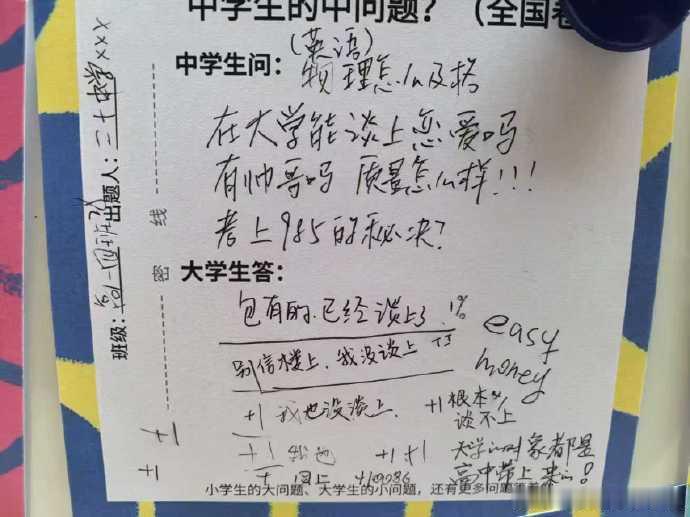 中学生的中问题？（全国卷
中学生问：
(英语)
物理怎么及格
在大学能谈上恋爱吗
有帅哥吗 质量怎么样!!!
考上985的秘决?
大学生答：
包有的.已经谈上了
1%
别信楼上,我没谈上 +3
easy
money
+1 我也没谈上.
+1 根本
谈不上
+1 我也
+1+1
大学的对象都是
高中带上来的!
+ 同上
小学生的大问题、大学生的小问题，还有更多问题
班级：高一四班 出题人：二十中学xxx
密
线